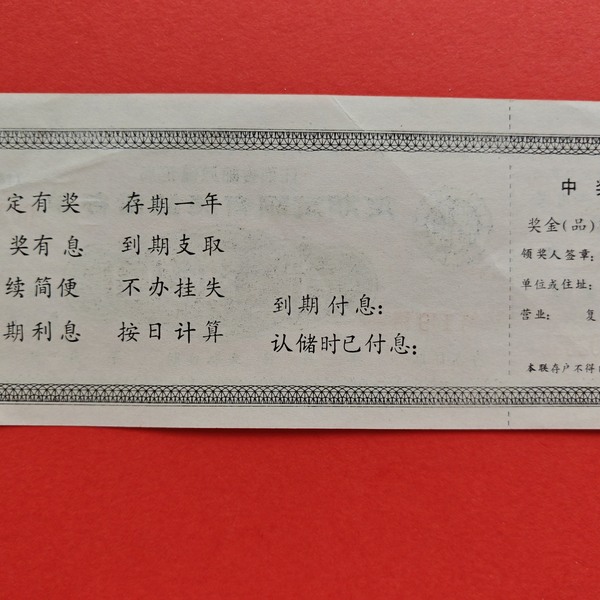 定有奖 存期一年
奖有息 到期支取
续简便 不办挂失
期利息 按日计算
到期付息：
认储时已付息：
中
奖金(品)
领奖人签章：
单位或住址：
营业： 复
本联存户不得